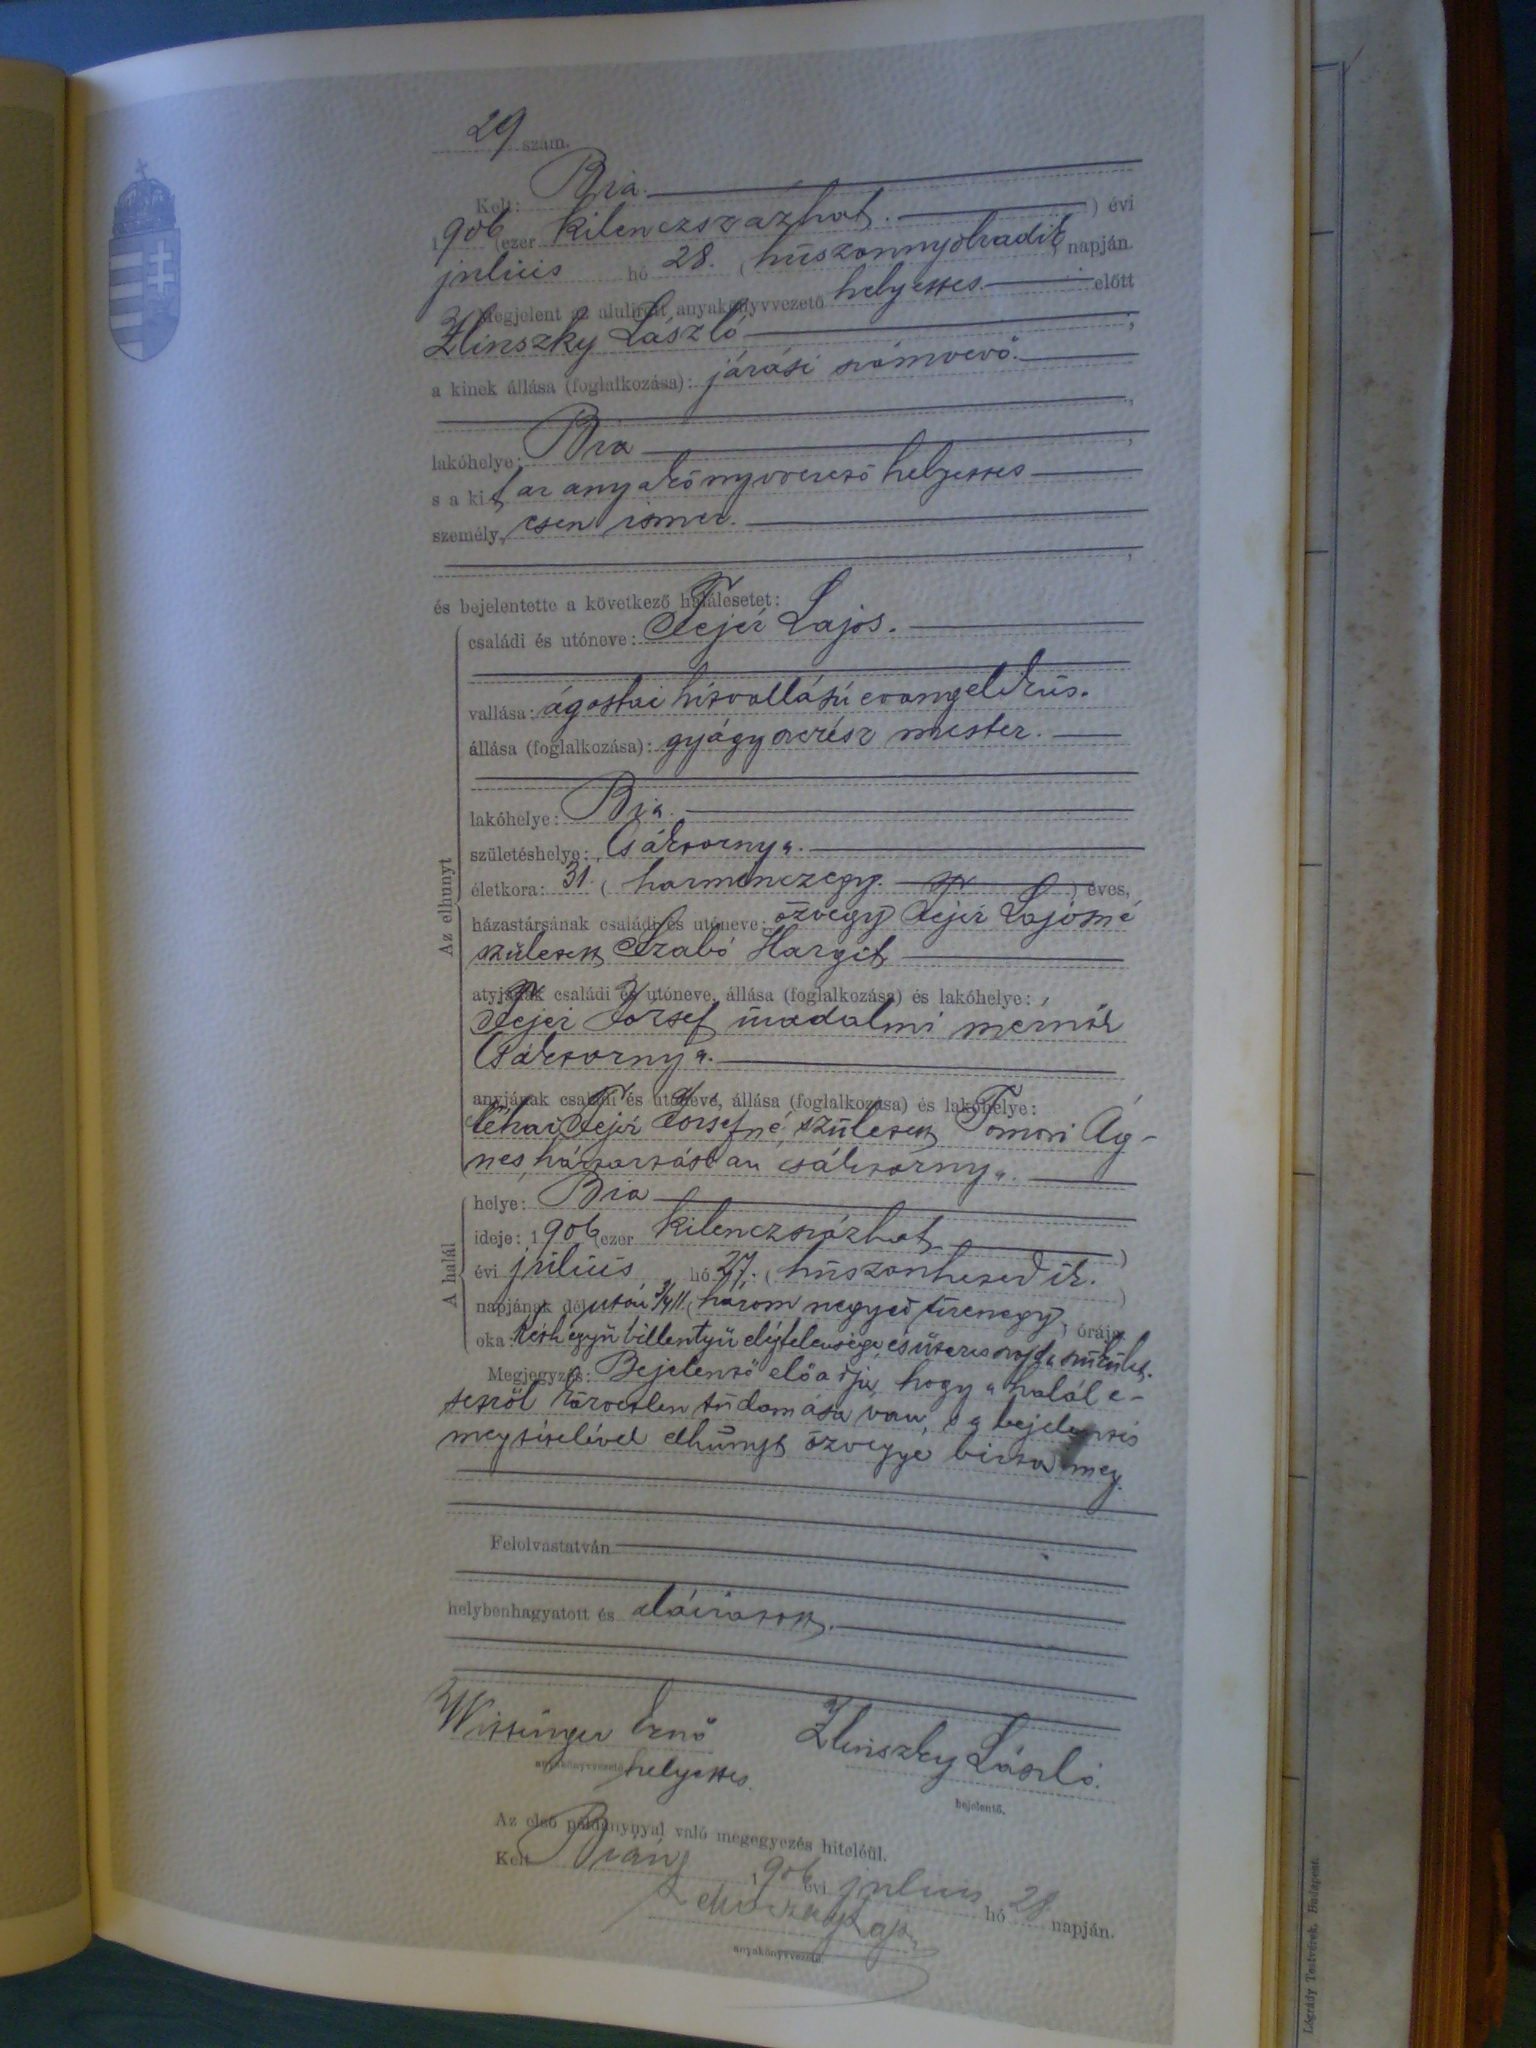 29 szám.
Kelt: Bia.
1906 (ezer kilenczszázhat. ) évi
julius hó 28. (huszonnyolcadik) napján.
Megjelent az alulirott anyakönyvvezető helyettes előtt
Zlinszky László ,
a kinek állása (foglalkozása): járási számvevő.
,
lakóhelye: Bia ,
s a kit az anyakönyvvezető helyettes
személyesen ismer.
,
és bejelentette a következő halálesetet:
Az elhunyt
családi és utóneve: Fejér Lajos.
vallása: ágostai hitvallású evangelikus.
állása (foglalkozása): gyógyszerész mester.
lakóhelye: Bia.
születéshelye: Csáktornya.
életkora: 31. (harminczegy. ) éves,
házastársának családi és utóneve: özvegy Fejér Lajosné
született Szabó Margit
atyjának családi és utóneve, állása (foglalkozása) és lakóhelye:
Fejér József uradalmi mérnök
Csáktornya.
anyjának családi és utóneve, állása (foglalkozása) és lakóhelye:
néhai Fejér Józsefné, született Tomori Ág-
nes, háztartásban csáktornya.
A halál
helye: Bia
ideje: 1906 (ezer kilenczszázhat )
évi julius hó 27. (huszonhetedik. )
napjának délután 3/4 11 (három negyed tizenegy) órája
oka: Kéthegyü billentyü elégtelensége és üteres zsugorodás.
Megjegyzés: Bejelentő előadja, hogy a halál e-
setről közvetlen tudomása van, s a bejelentés
megtételével elhunyt özvegye bizta meg.
Felolvastatván
helybenhagyatott és aláiratott.
Wittinger Ernő
anyakönyvvezető helyettes.
Zlinszky László.
bejelentő.
Az első példánynyal való megegyezés hiteléül.
Kelt Bián, 1906 évi julius hó 28 napján.
anyakönyvvezető.
Légrády Testvérek, Budapest.